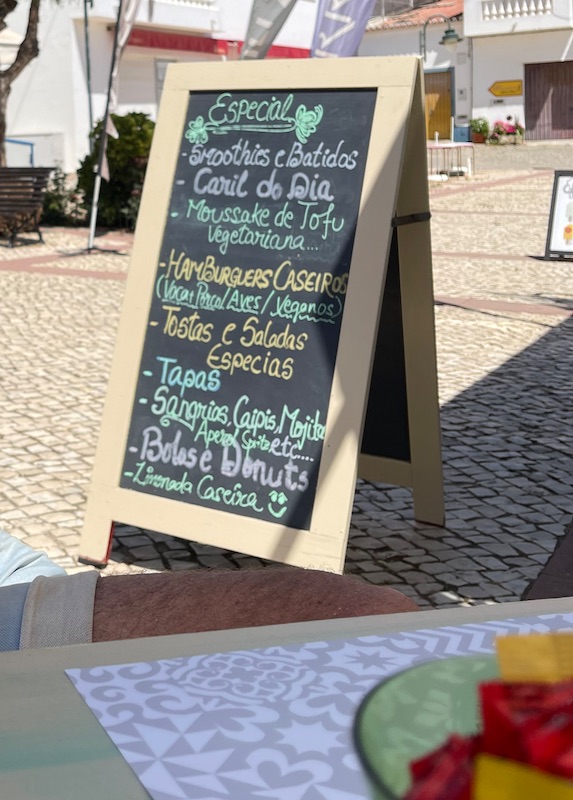 Especial
- Smoothies e Batidos
- Caril do Dia
- Moussake de Tofu
Vegetariana...
- HAMBURGUERS CASEIROS
(Vaca+Porco/Aves/Veganos)
- Tostas e Saladas
Especias
- Tapas
- Sangrias, Caipis, Mojitos
Aperol Spritz etc....
- Bolos e Donuts
- Limonada Caseira